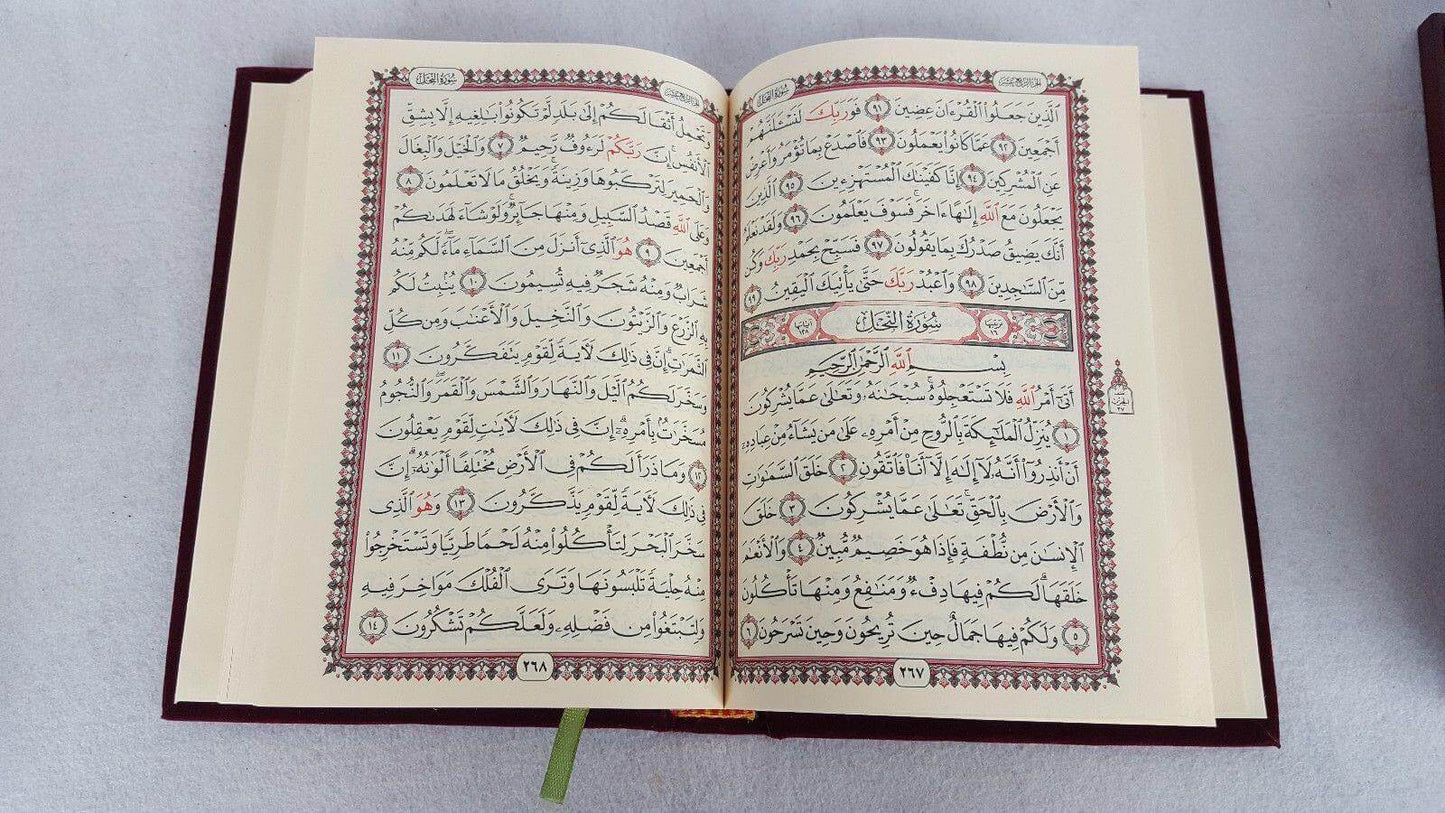 سُورَةُ النَّحْلِ
الجُزْءُ الرَّابِعَ عَشَرَ
ٱلَّذِينَ جَعَلُوا۟ ٱلْقُرْءَانَ عِضِينَ ٩١ فَوَرَبِّكَ لَنَسْـَٔلَنَّهُمْ
أَجْمَعِينَ ٩٢ عَمَّا كَانُوا۟ يَعْمَلُونَ ٩٣ فَٱصْدَعْ بِمَا تُؤْمَرُ وَأَعْرِضْ
عَنِ ٱلْمُشْرِكِينَ ٩٤ إِنَّا كَفَيْنَٰكَ ٱلْمُسْتَهْزِءِينَ ٩٥ ٱلَّذِينَ
يَجْعَلُونَ مَعَ ٱللَّهِ إِلَٰهًا ءَاخَرَ ۚ فَسَوْفَ يَعْلَمُونَ ٩٦ وَلَقَدْ نَعْلَمُ
أَنَّكَ يَضِيقُ صَدْرُكَ بِمَا يَقُولُونَ ٩٧ فَسَبِّحْ بِحَمْدِ رَبِّكَ وَكُن
مِّنَ ٱلسَّٰجِدِينَ ٩٨ وَٱعْبُدْ رَبَّكَ حَتَّىٰ يَأْتِيَكَ ٱلْيَقِينُ ٩٩
ترتيبها ١٦ سُورَةُ النَّحْلِ آياتها ١٢٨
بِسْمِ ٱللَّهِ ٱلرَّحْمَٰنِ ٱلرَّحِيمِ
أَتَىٰٓ أَمْرُ ٱللَّهِ فَلَا تَسْتَعْجِلُوهُ ۚ سُبْحَٰنَهُۥ وَتَعَٰلَىٰ عَمَّا يُشْرِكُونَ
١ يُنَزِّلُ ٱلْمَلَٰٓئِكَةَ بِٱلرُّوحِ مِنْ أَمْرِهِۦ عَلَىٰ مَن يَشَآءُ مِنْ عِبَادِهِۦٓ
أَنْ أَنذِرُوٓا۟ أَنَّهُۥ لَآ إِلَٰهَ إِلَّآ أَنَا۠ فَٱتَّقُونِ ٢ خَلَقَ ٱلسَّمَٰوَٰتِ
وَٱلْأَرْضَ بِٱلْحَقِّ ۚ تَعَٰلَىٰ عَمَّا يُشْرِكُونَ ٣ خَلَقَ
ٱلْإِنسَٰنَ مِن نُّطْفَةٍ فَإِذَا هُوَ خَصِيمٌ مُّبِينٌ ٤ وَٱلْأَنْعَٰمَ
خَلَقَهَا ۗ لَكُمْ فِيهَا دِفْءٌ وَمَنَٰفِعُ وَمِنْهَا تَأْكُلُونَ
٥ وَلَكُمْ فِيهَا جَمَالٌ حِينَ تُرِيحُونَ وَحِينَ تَسْرَحُونَ ٦
٢٦٧
سُورَةُ النَّحْلِ
الجُزْءُ الرَّابِعَ عَشَرَ
وَتَحْمِلُ أَثْقَالَكُمْ إِلَىٰ بَلَدٍ لَّمْ تَكُونُوا۟ بَٰلِغِيهِ إِلَّا بِشِقِّ
ٱلْأَنفُسِ ۚ إِنَّ رَبَّكُمْ لَرَءُوفٌ رَّحِيمٌ ٧ وَٱلْخَيْلَ وَٱلْبِغَالَ
وَٱلْحَمِيرَ لِتَرْكَبُوهَا وَزِينَةً ۚ وَيَخْلُقُ مَا لَا تَعْلَمُونَ ٨
وَعَلَى ٱللَّهِ قَصْدُ ٱلسَّبِيلِ وَمِنْهَا جَآئِرٌ ۚ وَلَوْ شَآءَ لَهَدَىٰكُمْ
أَجْمَعِينَ ٩ هُوَ ٱلَّذِىٓ أَنزَلَ مِنَ ٱلسَّمَآءِ مَآءً ۖ لَّكُم مِّنْهُ
شَرَابٌ وَمِنْهُ شَجَرٌ فِيهِ تُسِيمُونَ ١٠ يُنۢبِتُ لَكُم
بِهِ ٱلزَّرْعَ وَٱلزَّيْتُونَ وَٱلنَّخِيلَ وَٱلْأَعْنَٰبَ وَمِن كُلِّ
ٱلثَّمَرَٰتِ ۗ إِنَّ فِى ذَٰلِكَ لَءَايَةً لِّقَوْمٍ يَتَفَكَّرُونَ ١١
وَسَخَّرَ لَكُمُ ٱلَّيْلَ وَٱلنَّهَارَ وَٱلشَّمْسَ وَٱلْقَمَرَ ۖ وَٱلنُّجُومُ
مُسَخَّرَٰتٌۢ بِأَمْرِهِۦٓ ۗ إِنَّ فِى ذَٰلِكَ لَءَايَٰتٍ لِّقَوْمٍ يَعْقِلُونَ
١٢ وَمَا ذَرَأَ لَكُمْ فِى ٱلْأَرْضِ مُخْتَلِفًا أَلْوَٰنُهُۥٓ ۗ إِنَّ
فِى ذَٰلِكَ لَءَايَةً لِّقَوْمٍ يَذَّكَّرُونَ ١٣ وَهُوَ ٱلَّذِى
سَخَّرَ ٱلْبَحْرَ لِتَأْكُلُوا۟ مِنْهُ لَحْمًا طَرِيًّا وَتَسْتَخْرِجُوا۟
مِنْهُ حِلْيَةً تَلْبَسُونَهَا وَتَرَى ٱلْفُلْكَ مَوَاخِرَ فِيهِ
وَلِتَبْتَغُوا۟ مِن فَضْلِهِۦ وَلَعَلَّكُمْ تَشْكُرُونَ ١٤
٢٦٨